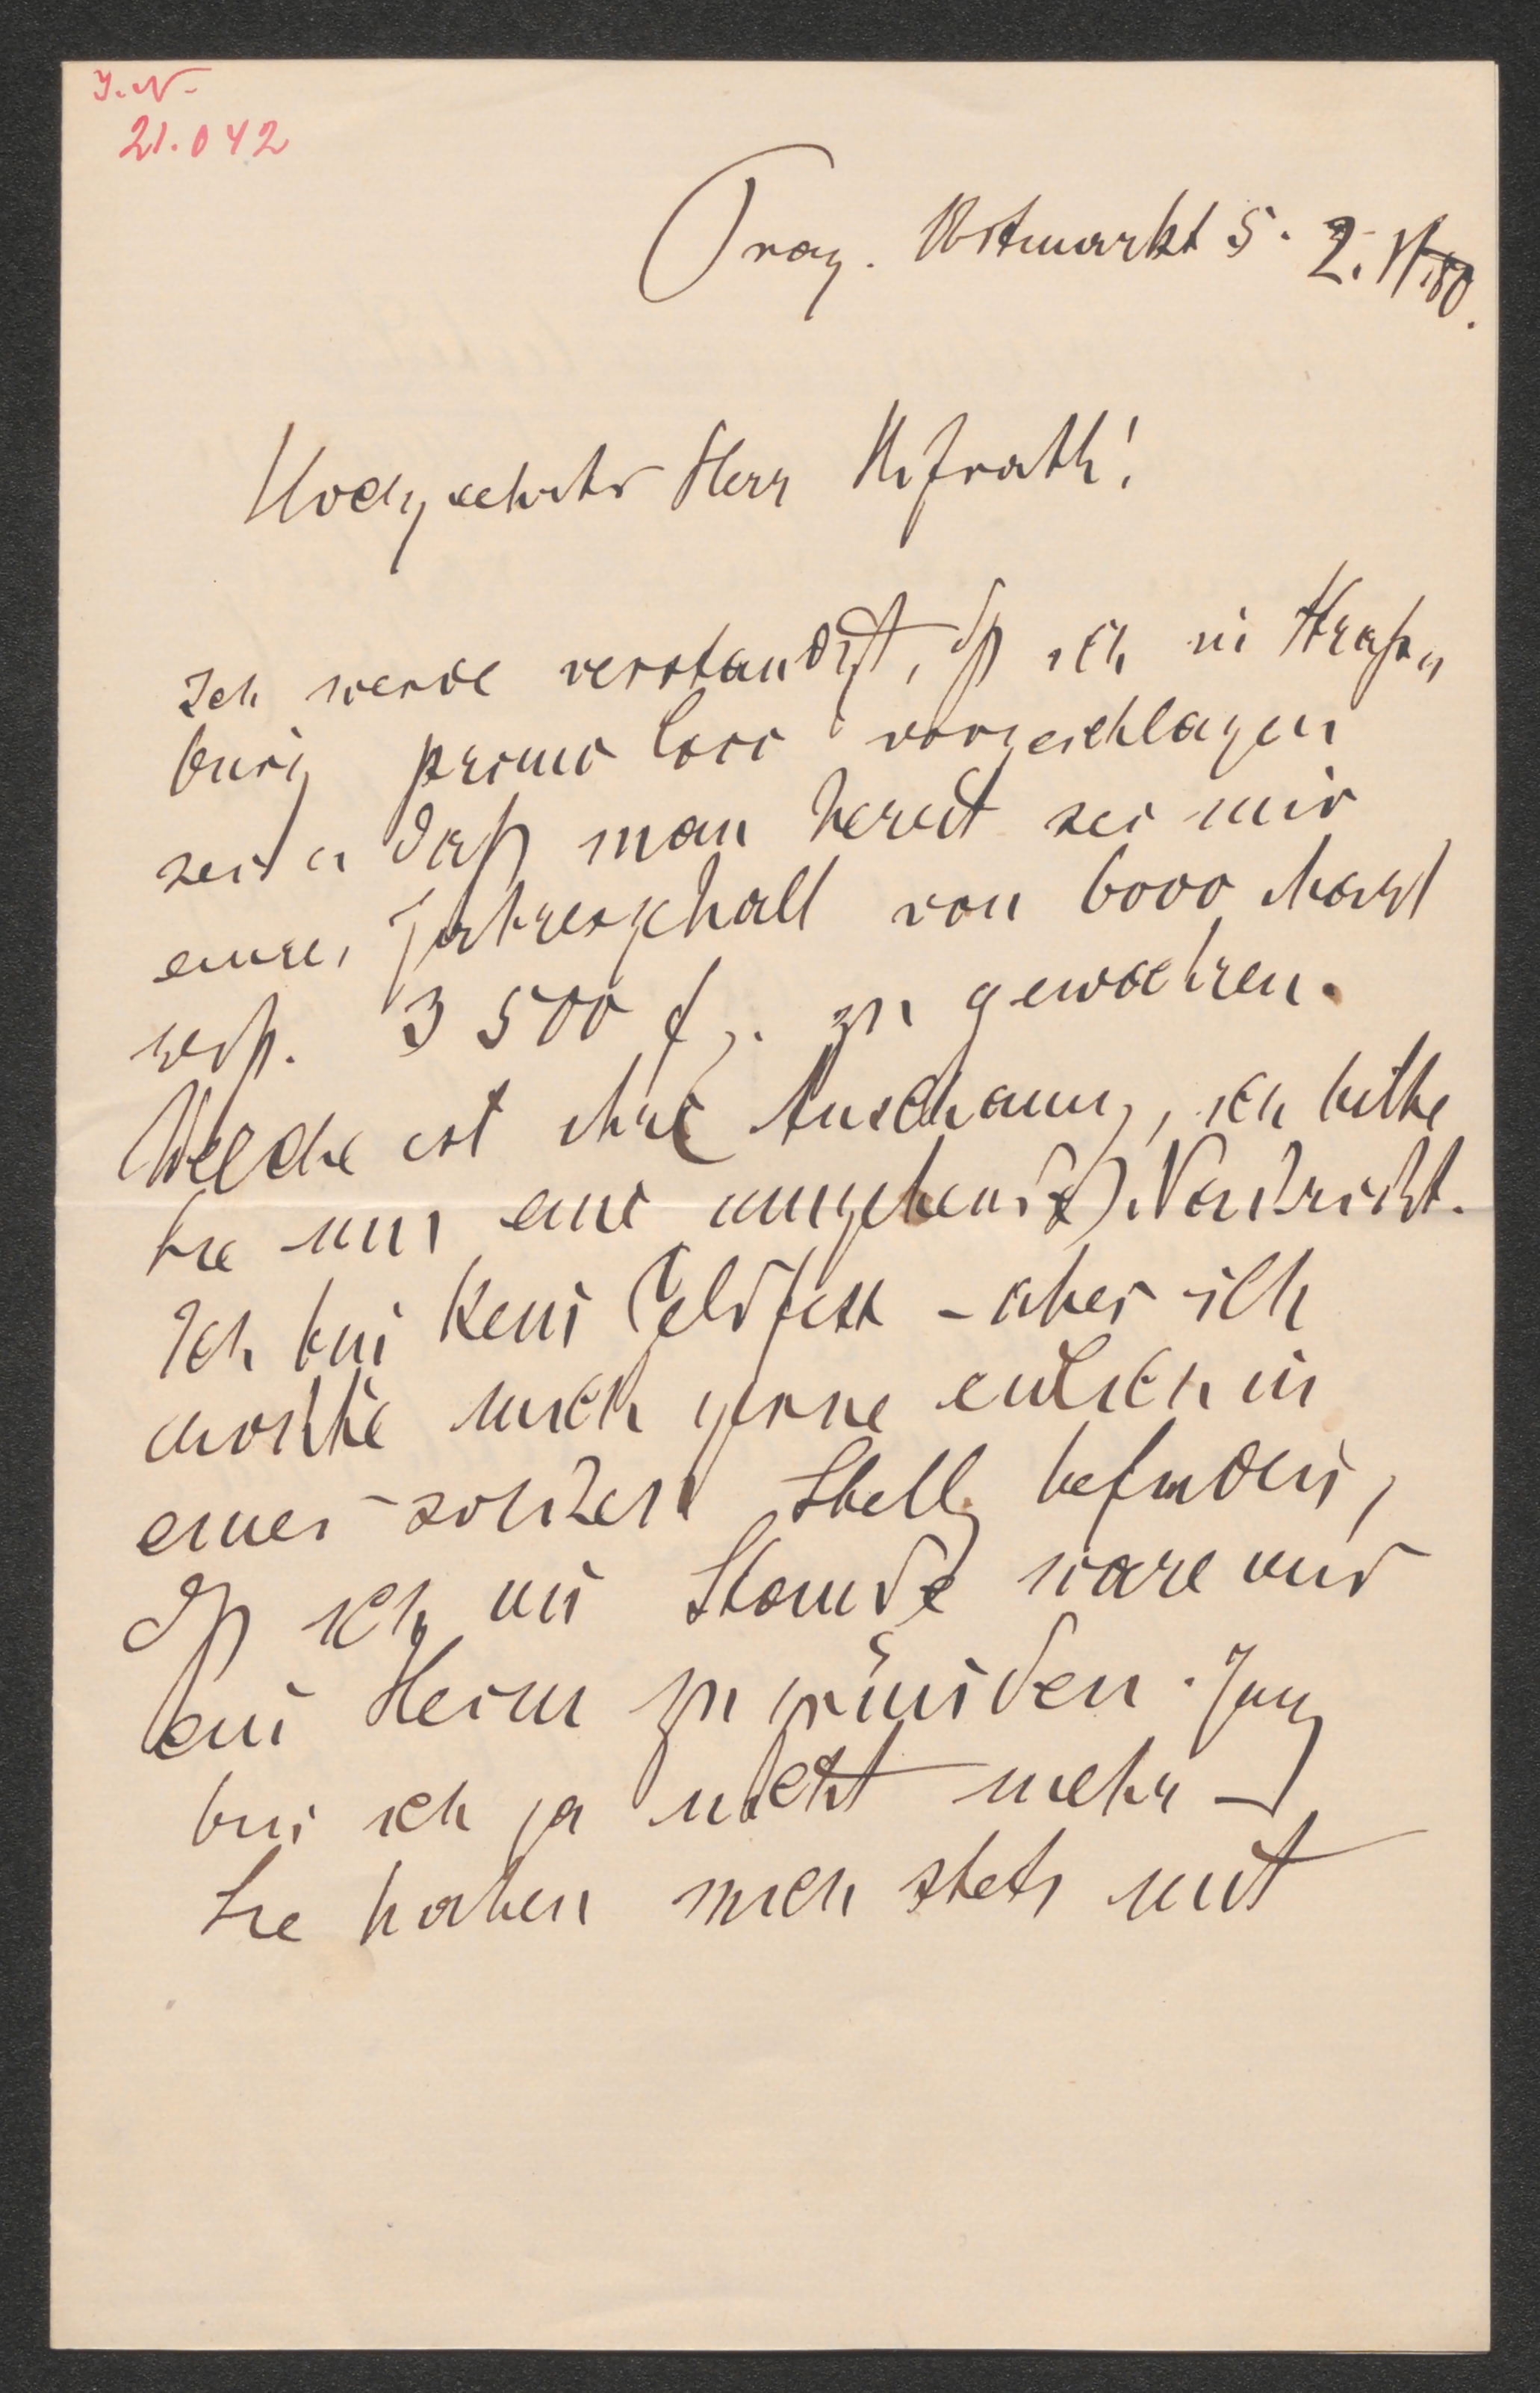 I.N.
21.042
Prag. Obstmarkt 5. 2. VI. 80.
Hochgeehrter Herr Hofrath!
Ich werde verstandigt, dß ich in Straß„
burg primo loco vorgeschlagen
sei u daß man bereit sei mir
einen Jahresgehalt von 6000 Mark
resp. 3500 f. zu gewaehren.
Welche ist ihre Anschauung, ich bitte
Sie um eine umgehende Nachricht.
Ich bin kein Geldfex – aber ich
mochte mich gerne endlich in
einer solchen Stellg befinden,
dß ich im Stande ware mir
ein Heim zu gründen. Jung
bin ich ja nicht mehr –
Sie haben mich stets mit